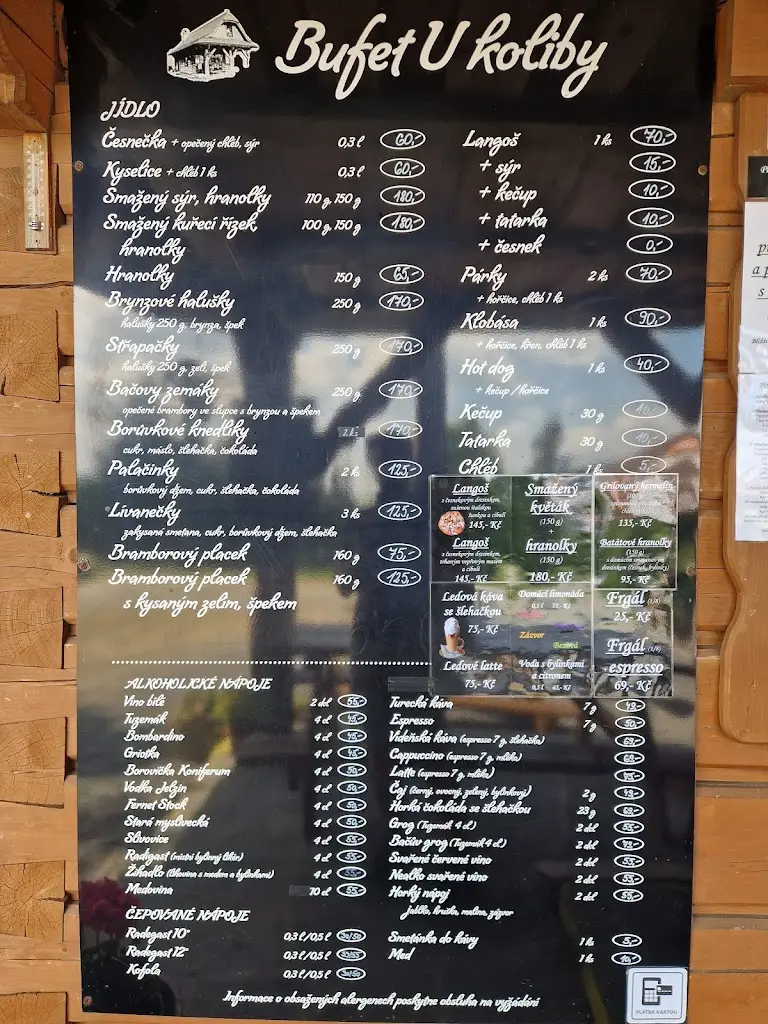 Bufet U koliby
JÍDLO
Česnečka + opečený chléb, sýr 0,3 l 60,-
Kyselice + chléb 1 ks 0,3 l 60,-
Smažený sýr, hranolky 110 g, 150 g 180,-
Smažený kuřecí řízek, 100 g, 150 g 180,-
hranolky
Hranolky 150 g 65,-
Brynzové halušky 250 g 170,-
halušky 250 g, brynza, špek
Strapačky 250 g 170,-
halušky 250 g, zelí, špek
Bačovy zemáky 250 g 170,-
opečené brambory ve slupce s brynzou a špekem
Borůvkové knedlíky 2 ks 170,-
cukr, máslo, šlehačka, čokoláda
Palačinky 2 ks 125,-
borůvkový džem, cukr, šlehačka, čokoláda
Lívanečky 3 ks 125,-
zakysaná smetana, cukr, borůvkový džem, šlehačka
Bramborový placek 160 g 75,-
Bramborový placek 160 g 125,-
s kysaným zelím, špekem
Langoš 1 ks 70,-
+ sýr 15,-
+ kečup 10,-
+ tatarka 10,-
+ česnek 0,-
Párky 2 ks 70,-
+ hořčice, chléb 1 ks
Klobása 1 ks 90,-
+ hořčice, křen, chléb 1 ks
Hot dog 1 ks 40,-
+ kečup / hořčice
Kečup 30 g 10,-
Tatarka 30 g 10,-
Chléb 1 ks 5,-
Langoš
s česnekovým dresinkem,
sušenou italskou
šunkou a cibulí
145,- Kč
Langoš
s česnekovým dresinkem,
trhaným vepřovým masem
a cibulí
145,- Kč
Smažený
květák
(150 g)
+
hranolky
(150 g)
180,- Kč
Grilovaný hermelín
135,- Kč
Batátové hranolky
(150 g)
s domácím
dresinkem
95,- Kč
Ledová káva
se šlehačkou
75,- Kč
Ledové latte
75,- Kč
Domácí limonáda
0,5 l 75,- Kč
Zázvor
Bezová
Voda s bylinkami
a citronem
0,5 l 45,- Kč
Frgál (1/8)
25,- Kč
Frgál (1/8)
espresso
69,- Kč
ALKOHOLICKÉ NÁPOJE
Víno bílé 2 dcl 55,-
Tuzemák 4 cl 45,-
Bombardino 4 cl 45,-
Griotka 4 cl 45,-
Borovička Koniferum 4 cl 50,-
Vodka Jelzin 4 cl 50,-
Fernet Stock 4 cl 50,-
Stará myslivecká 4 cl 50,-
Slivovice 4 cl 55,-
Radigast (místní bylinný likér) 4 cl 55,-
Žihadlo (lihovina s medem a bylinkami) 4 cl 55,-
Medovina 10 cl 55,-
ČEPOVANÉ NÁPOJE
Radegast 10° 0,3 l / 0,5 l
Radegast 12° 0,3 l / 0,5 l
Kofola 0,3 l / 0,5 l
Turecká káva 7 g 49,-
Espresso 7 g 50,-
Vídeňská káva (espresso 7 g, šlehačka) 69,-
Cappuccino (espresso 7 g, mléko) 69,-
Latte (espresso 7 g, mléko) 75,-
Čaj (černý, ovocný, zelený, bylinkový) 2 g 49,-
Horká čokoláda se šlehačkou 23 g 69,-
Grog (Tuzemák 4 cl) 2 dcl 55,-
Bačův grog (Tuzemák 4 cl) 2 dcl 75,-
Svařené červené víno 2 dcl 55,-
Nealko svařené víno 2 dcl 55,-
Horký nápoj 2 dcl 55,-
jablko, hruška, malina, zázvor
Smetánka do kávy 1 ks 5,-
Med 1 ks 10,-
Informace o obsažených alergenech poskytne obsluha na vyžádání
PLATBA KARTOU